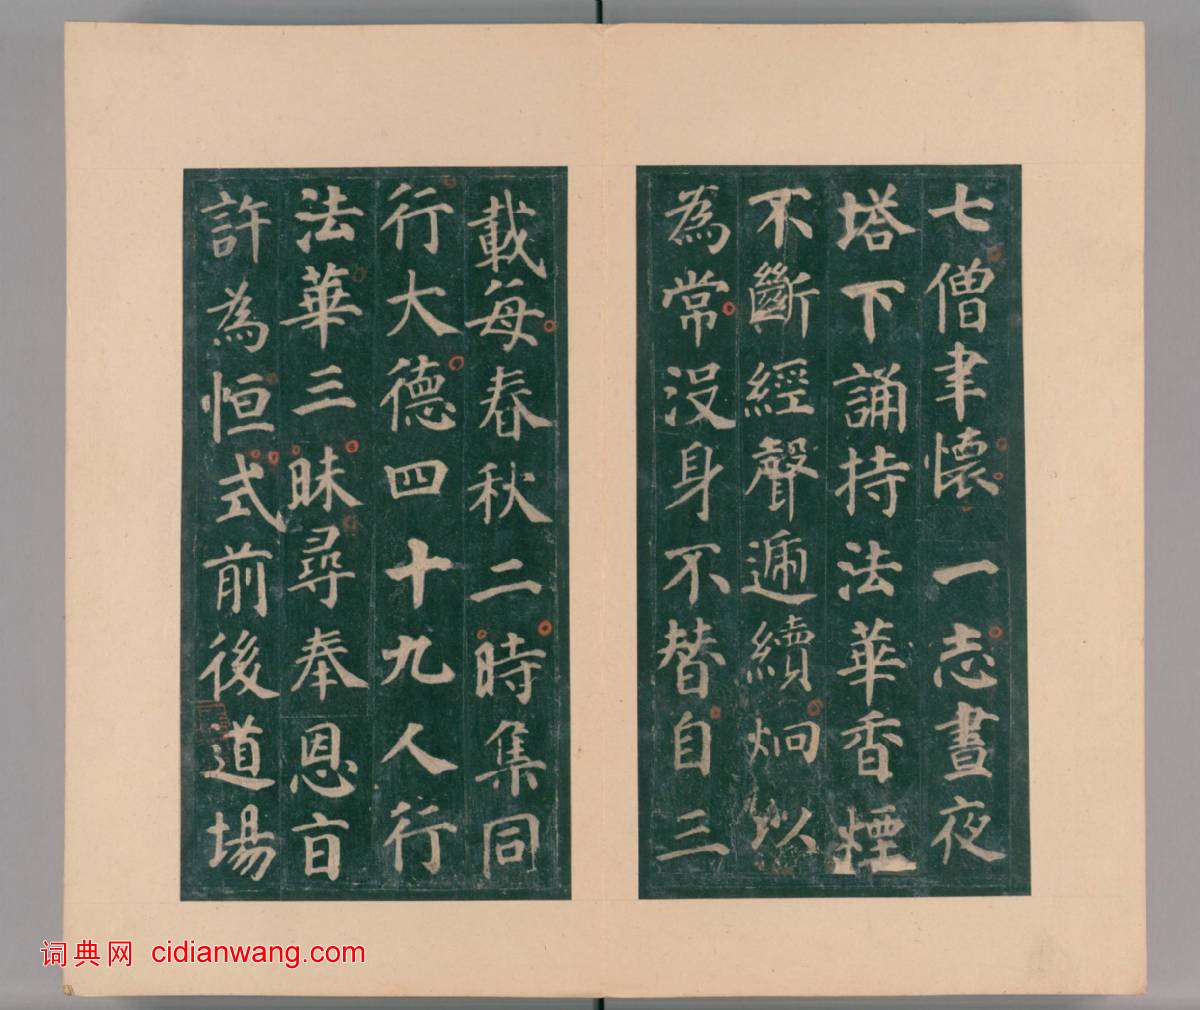 七僧聿懷一志晝夜
塔下誦持法華香煙
不斷經聲遞續炯以
為常没身不替自三
載每春秋二時集同
行大德四十九人行
法華三昧尋奉恩旨
許為恒式前後道場
词典网 cidianwang.com